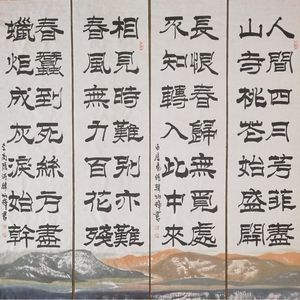 人間四月芳菲盡
山寺桃花始盛開
長恨春歸無覓處
不知轉入此中來
相見時難別亦難
春風無力百花殘
春蠶到死絲方盡
蠟炬成灰淚始幹